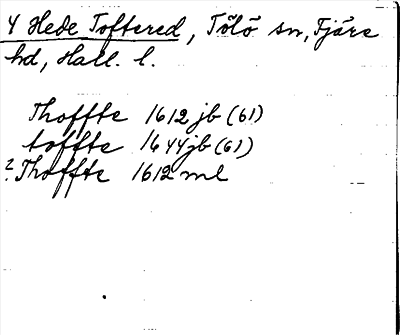 4 Hede Toftered, Tölö sn, Fjäre
hd, Hall. l.
Thoffte 1612 jb (61)
toffte 1644 jb (61)
?Thoffte 1612 ml